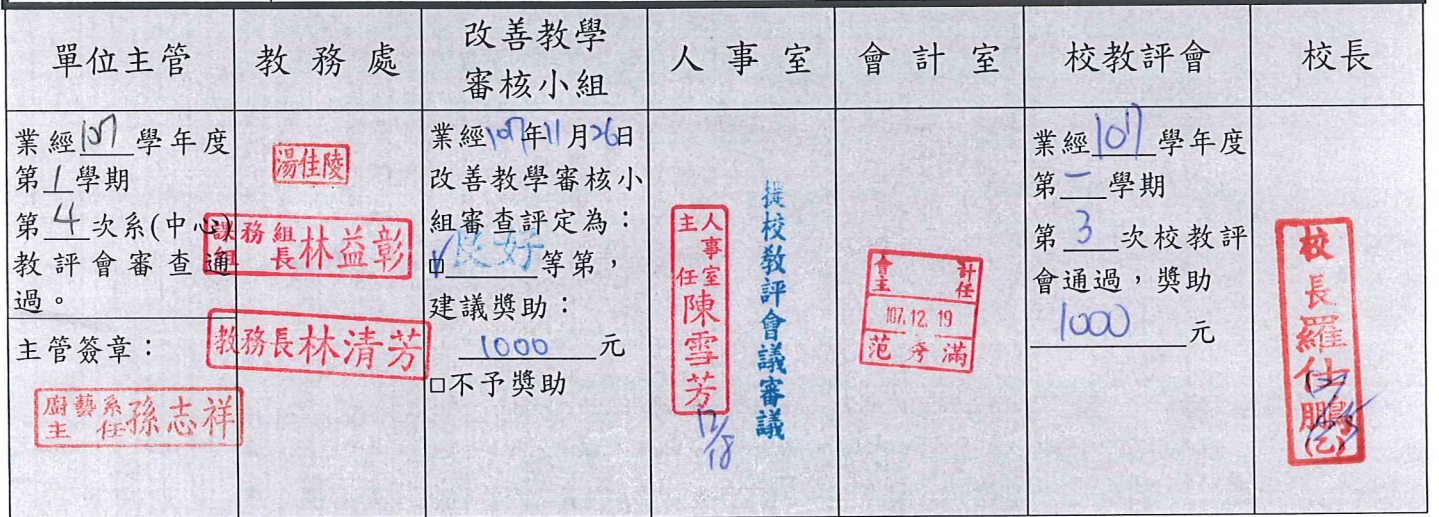 單位主管
教務處
改善教學
審核小組
人事室
會計室
校教評會
校長
業經107學年度
第1學期
第4次系(中心)
教評會審查通
過。
主管簽章：
廚藝系
主任
孫志祥
湯佳陵
課務組
組長
林益彰
教務長林清芳
業經107年11月26日
改善教學審核小
組審查評定為：
□良好等第，
建議獎助：
1000元
□不予獎助
人事室
主任
陳雪芳
12/18
提校教評會議審議
會計
主任
107.12.19
范秀滿
業經107學年度
第一學期
第3次校教評
會通過，獎助
1000元
校長羅仕鵬
(乙)